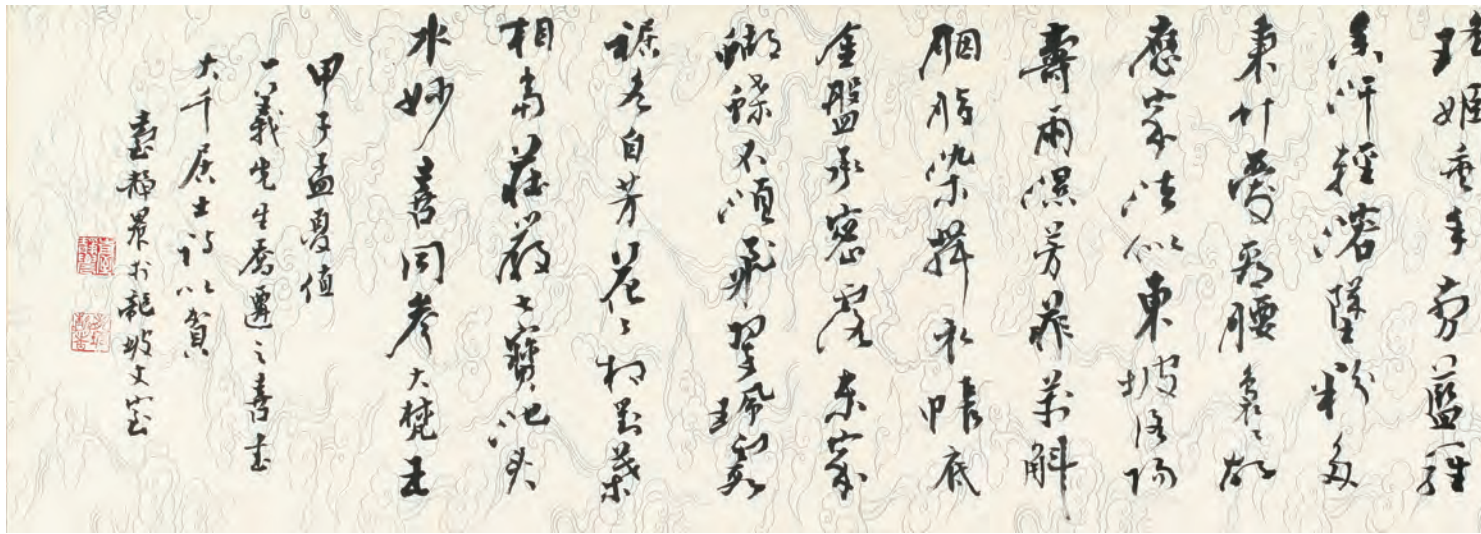 姬垂手藍羅
香汗輕溶墜粉多
束竹腰裊裊故
應家法似東坡洛陽
雨濕芳菲萬斛
胭脂染衣帳底
金盤承密露東家
蝴蝶不須飛翠珮
自芳花花相對葉
相當莊嚴七寶池頭
水妙喜同參大梵王
甲子孟夏值
一義先生喬遷之喜書
大千居士詩以賀
臺靜農於龍坡丈室